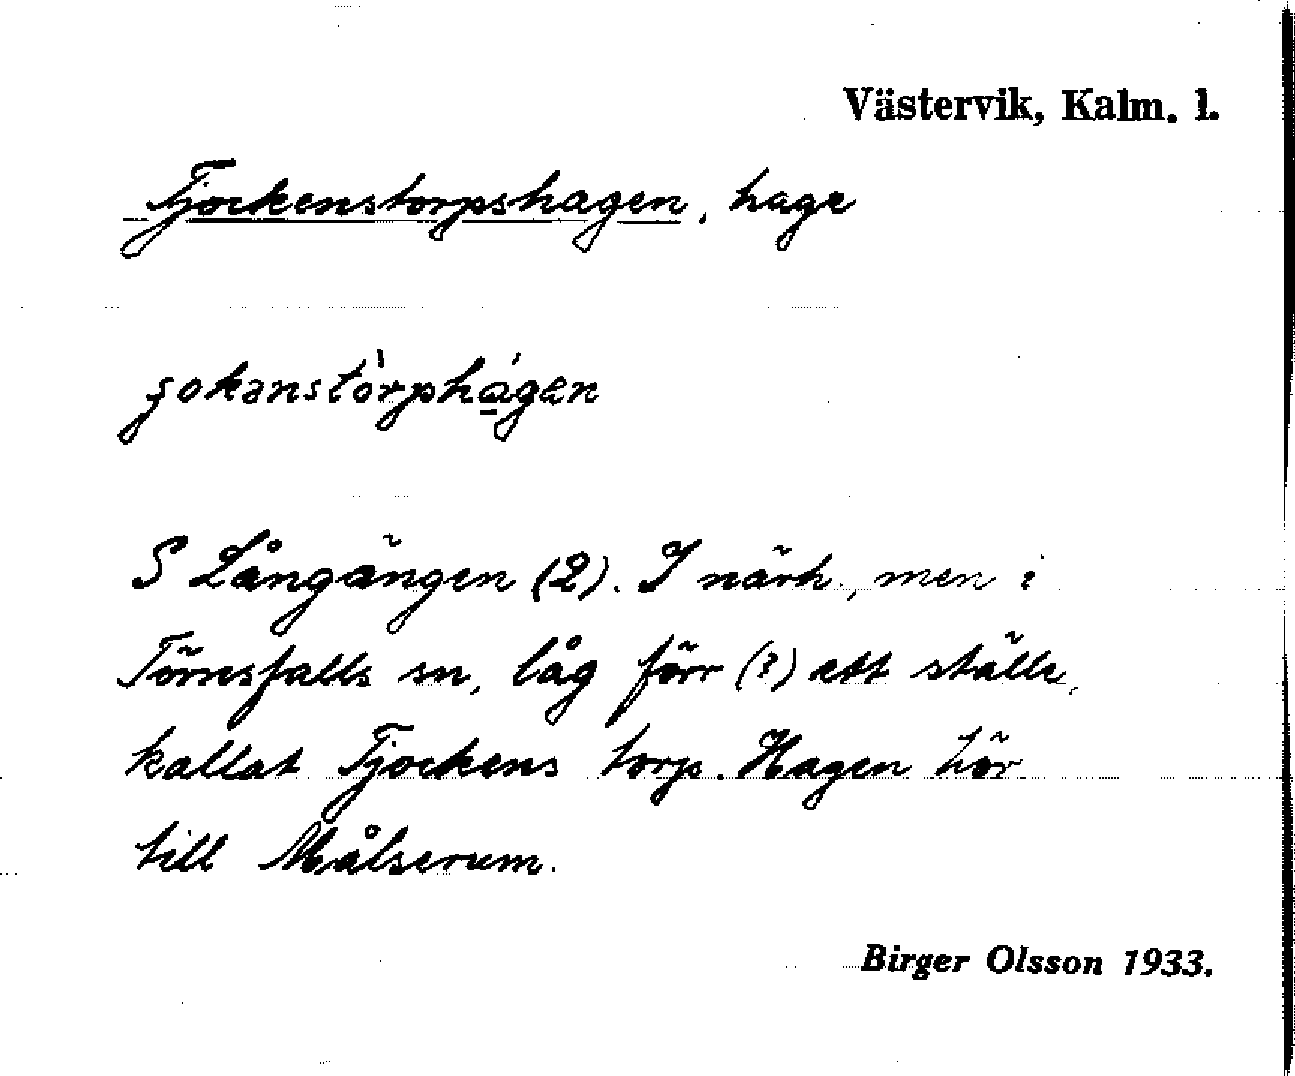 Västervik, Kalm. l.
Tjockenstorpshagen, hage
ʂokənstòrphágən
S Långängen (2). I närh., men i
Törnesfalls sn, låg förr (?) ett ställe,
kallat Tjockens torp. Hagen hör
till Målserum.
Birger Olsson 1933.